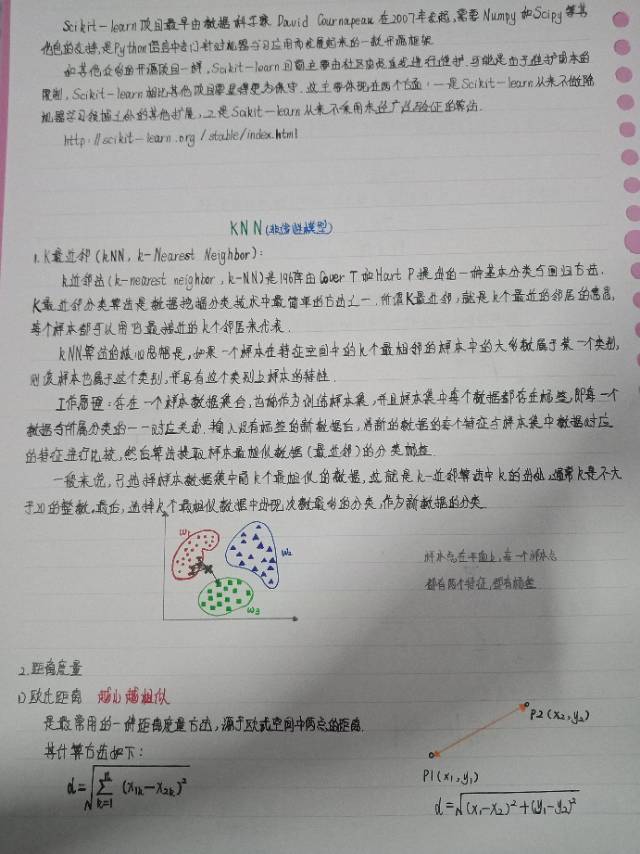 Scikit-learn项目最早由数据科学家 David Cournapeau 在2007年发起,需要Numpy和Scipy等其
他包的支持,是Python语言中专门针对机器学习应用而发展起来的一款开源框架.
和其他众多的开源项目一样,Scikit-learn目前主要由社区成员自发进行维护.可能是由于维护成本的
限制,Scikit-learn相比其他项目要显得更为保守.这主要体现在两个方面:一是Scikit-learn从来不做除
机器学习领域之外的其他扩展,二是Scikit-learn从来不采用未经广泛验证的算法.
http://scikit-learn.org/stable/index.html
KNN(非线性模型)
1.K最近邻(kNN, k-Nearest Neighbor):
k近邻法(k-nearest neighbor, k-NN)是1967年由Cover T和Hart P提出的一种基本分类与回归方法.
K最近邻分类算法是数据挖掘分类技术中最简单的方法之一.所谓K最近邻,就是k个最近的邻居的意思,
每个样本都可以用它最接近的k个邻居来代表.
kNN算法的核心思想是,如果一个样本在特征空间中的k个最相邻的样本中的大多数属于某一个类别,
则该样本也属于这个类别,并具有这个类别上样本的特性.
工作原理:存在一个样本数据集合,也称作为训练样本集,并且样本集中每个数据都存在标签,即每一个
数据与所属分类的一一对应关系.输入没有标签的新数据后,将新的数据的每个特征与样本集中数据对应
的特征进行比较,然后算法提取样本最相似数据(最近邻)的分类标签.
一般来说,只选择样本数据集中前k个最相似的数据,这就是k-近邻算法中k的出处,通常k是不大
于20的整数.最后,选择k个最相似数据中出现次数最多的分类,作为新数据的分类
w₁
w₂
w₃
样本点在平面上,每一个样本点
都有两个特征,都有标签
2.距离度量
1)欧氏距离 越小越相似
是最常用的一种距离度量方法,源于欧式空间中两点的距离.
其计算方法如下:
d=√(∑ₖ₌₁ⁿ (x₁ₖ-x₂ₖ)²)
P2(x₂,y₂)
P1(x₁,y₁)
d=√((x₁-x₂)²+(y₁-y₂)²)